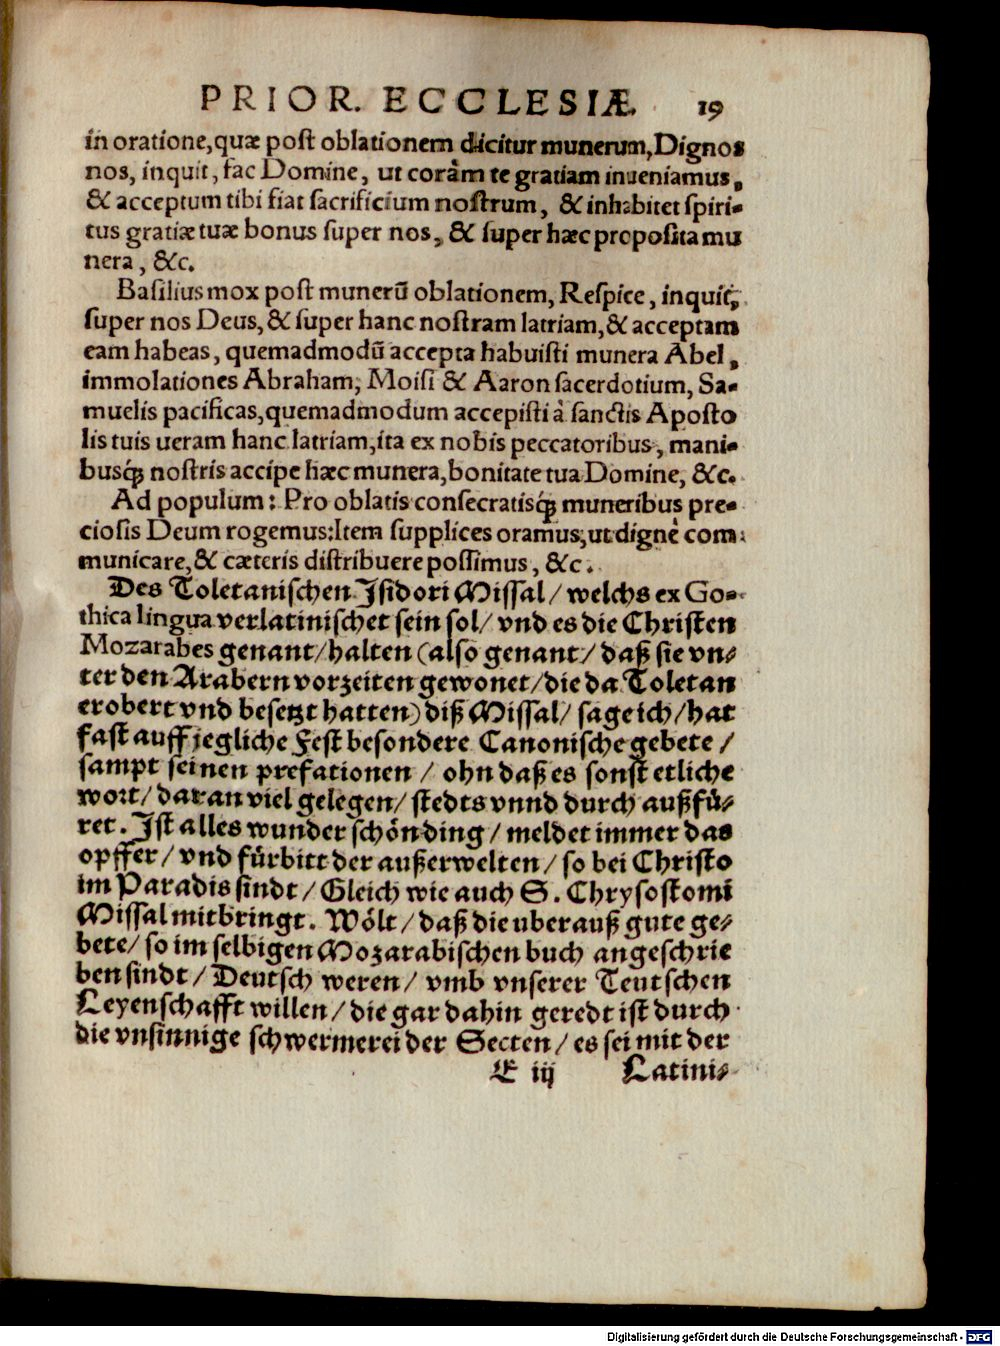 PRIOR. ECCLESIÆ. 19
in oratione, quæ post oblationem dicitur munerum, Dignos
nos, inquit, fac Domine, ut corâm te gratiam inueniamus,
& acceptum tibi fiat sacrificium nostrum, & inhabitet spiri-
tus gratiæ tuæ bonus super nos, & super hæc proposita mu
nera, &c.
Basilius mox post munerū oblationem, Respice, inquit,
super nos Deus, & super hanc nostram latriam, & acceptam
eam habeas, quemadmodū accepta habuisti munera Abel,
immolationes Abraham, Moisi & Aaron sacerdotium, Sa-
muelis pacificas, quemadmodum accepisti à sanctis Aposto
lis tuis ueram hanc latriam, ita ex nobis peccatoribus, mani-
busq; nostris accipe hæc munera, bonitate tua Domine, &c.
Ad populum: Pro oblatis consecratisq; muneribus pre-
ciosis Deum rogemus: Item supplices oramus, ut dignè com-
municare, & cæteris distribuere possimus, &c.
Des Toletanischen Isidori Missal/ welchs ex Go-
thica lingua verlatinischet sein sol/ vnd es die Christen
Mozarabes genant/ halten (also genant/ daß sie vn-
ter den Arabern vorzeiten gewonet/ die da Toletan
erobert vnd besetzt hatten) diß Missal/ sage ich/ hat
fast auff jegliche Fest besondere Canonische gebete/
sampt seinen prefationen/ ohn daß es sonst etliche
wort/ daran viel gelegen/ stedts vnnd durch außfü-
ret. Ist alles wunder schön ding/ meldet immer das
opffer/ vnd fürbitt der außerwelten/ so bei Christo
im Paradis sindt/ Gleich wie auch S. Chrysostomi
Missal mitbringt. Wölt/ daß die uberauß gute ge-
bete/ so im selbigen Mozarabischen buch angeschrie
ben sindt/ Deutsch weren/ vmb vnserer Teutschen
Leyenschafft willen/ die gar dahin geredt ist durch
die vnsinnige schwermerei der Secten/ es sei mit der
E iij Latini-
Digitalisierung gefördert durch die Deutsche Forschungsgemeinschaft - DFG